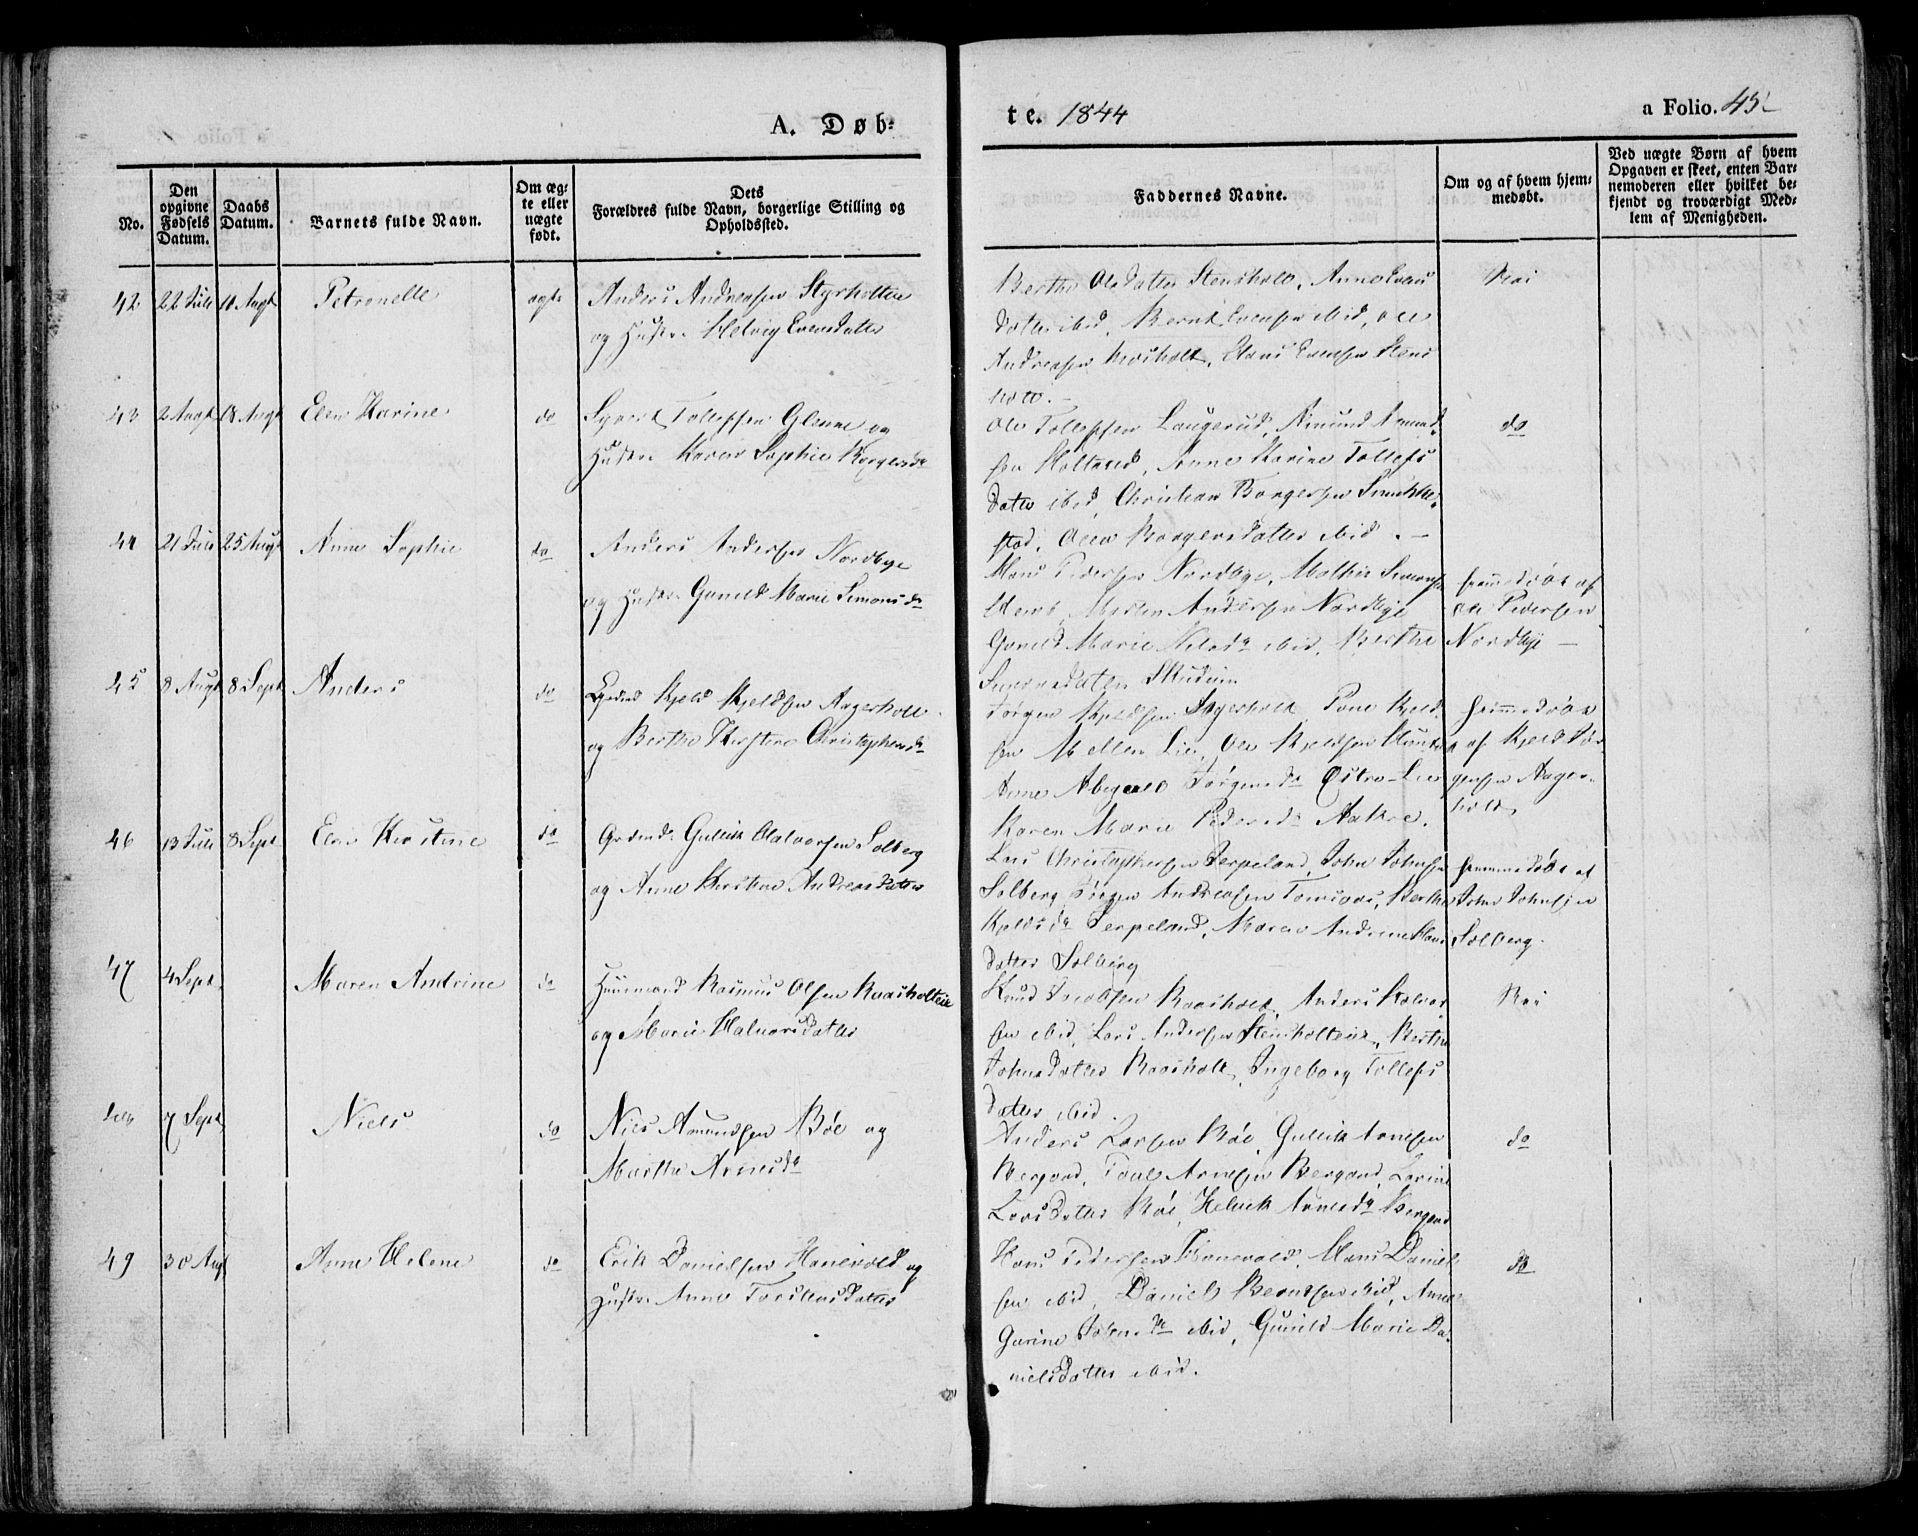 A. Døb-
te. 1844
a Folio. 45
No.
Den opgivne Fødsels Datum.
Daabs Datum.
Barnets fulde Navn.
Om ægte eller uægte født.
Dets
Forældres fulde Navn, borgerlige Stilling og
Opholdssted.
Faddernes Navne.
Om og af hvem hjem-
medøbt.
Ved uægte Børn af hvem
Opgaven er skeet, enten Bar-
nemoderen eller hvilket be-
kjendt og troværdigt Med-
lem af Menigheden.
42 22 Juli 11 Augt Petronelle ægte Anders Andreasen
og Hustr. Helvig Evensdatter
Berthe Olsdatter Stensholt, Anne Evens
datter ibid, Bernt Evensen ibid, Ole
Andreasen, Hans Evensen Stens
holt.
Nei
43 2 Augt 18 Augt Elen Karine do Syvert Tollefsen Glenne og
Hustr. Karen Sophie Borgersdr
Ole Tollefsen Laugerud, Amund Amund-
sen Holtared, Anne Karine Tollefs
datter ibid, Christian Borgersen
stad, Borgersdatter ibid.
do
44 21 Juli 25 Augt Anne Sophie do Anders Andersen Nordbye
og Hustr. Gunild Marie Simonsdr
Hans Pedersen Nordbye, Mathis Simonsen
Morten Andersen Nordbye
Gunild Marie Nilsdr ibid, Berthe
Simonsdatter
hjemmedøbt af
Ole Pedersen
Nordbye
45 8 Augt 8 Sept Anders do Kjeld Kjeldsen Aagerholt
og Berthe Kirstine Christophersdr
Jørgen Kjeldsen Aagerholt, Kjeld-
sen Mellem Lie, Ole Kjeldsen
Anne Abigael Jørgensdr Østre Lie
Karen Marie Pedersdr Aakre.
hjemmedøbt
af Kjeld Jør-
gensen Aager-
holt
46 13 Juli 8 Sept Elen Kirstine do Gullik Halvorsen Solberg
og Anne Kirstine Andreasdatter
Lars Christophersen Jerpeland, John Johnsen
Solberg, Jørgen Andreasen, Berthe
Kjeldsdr Jerpeland, Maren Andrine Hans
datter Solberg
hjemmedøbt af
John Johnsen
Solberg.
47 4 Sept Maren Andrine do Huusmand Rasmus Olsen Raasholteie
og Marie Halvorsdatter
Knud Jacobsen Raasholt, Anders Halvor
sen ibid, Lars Andersen Stensholteie, Berthe
Johnsdatter Raasholt, Ingeborg Tollefs
datter ibid.
Nei
7 Sept Niels do Niels Amundsen Bøe og
Marthe Arnesdr
Anders Larsen Bøe, Gullik Arnesen
Bergand, Arnesen Bergand, Larine
Larsdatter Bøe, Helvik Arnesdr Bergand
do
49 30 Augt Anne Helene do Erik Danielsen Hanevold og
Hustr. Anne Torstensdatter
Hans Pedersen Hanevold, Hans Daniel
sen ibid, Daniel Berntsen ibid, Anne
Garine Johnsdr ibid, Gunild Marie Da-
nielsdatter ibid.
do